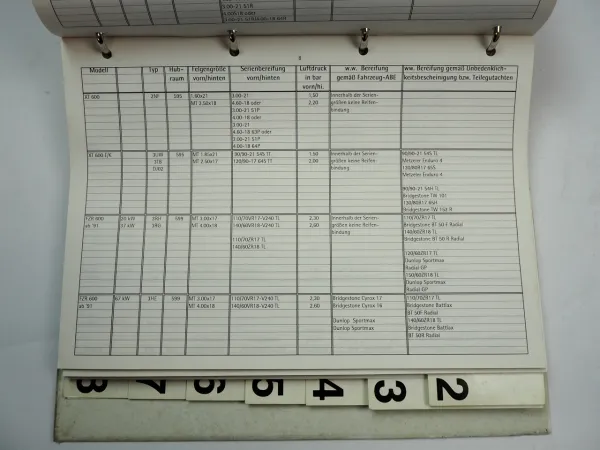 3.00-21 51R
4.60S18 oder
8
Modell Typ Hub-raum Felgengröße vorn/hinten Serienbereifung vorn/hinten Luftdruck in bar vorn/hi. w.w. Bereifung gemäß Fahrzeug-ABE ww. Bereifung gemäß Unbedenklich-keitsbescheinigung bzw. Teilegutachten
XT 600 595 1.60x21 3.00-21 1,50 innerhalb der Serien-
MT 2.50x18 4.60-18 oder 2,20 größen keine Reifen-
3.00-21 51P bindung
4.60-18 oder
3.00-21
4.60-18 63P oder
3.00-21 51P
4.60-18 64P
XT 600 E/K 595 MT 1.85x21 90/90-21 54S TL 1,50 innerhalb der Serien- 90/90-21 54S TL
MT 2.50x17 120/90-17 64S TL 2,00 größen keine Reifen- Metzeler Enduro 4
bindung 130/80R17 65S
Metzeler Enduro 4
90/90-21 54H TL
Bridgestone TW 101
130/80R17 65H
Bridgestone TW 152 R
20 kW 599 MT 3.00x17 110/70ZR17-V240 TL 2,30 innerhalb der Serien- 110/70ZR17 TL
ab '91 37 kW MT 4.00x18 140/60VR18-V240 TL 2,60 größen keine Reifen- Bridgestone BT 50 F Radial
bindung 140/60ZR18 TL
110/70ZR17 TL Bridgestone BT 50 R Radial
140/60ZR18 TL
120/60ZR17 TL
Dunlop Sportmax
Radial GP
150/60ZR18 TL
Dunlop Sportmax
Radial GP
67 kW 599 MT 3.00x17 110/70VR17-V240 TL 2,30 Bridgestone Cyrox 17 110/70ZR17 TL
ab '91 MT 4.00x18 140/60VR18-V240 TL 2,60 Bridgestone Cyrox 16 Bridgestone Battlax
BT 50F Radial
Dunlop Sportmax 140/60ZR18 TL
Dunlop Sportmax Bridgestone Battlax
BT 50R Radial
8 7 6 5 4 3 2